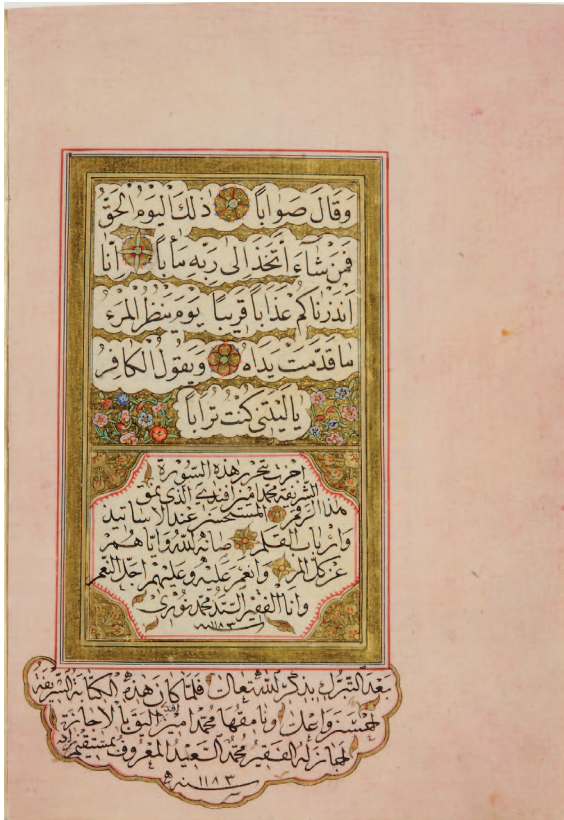 وَقَالَ صَوَاباً ذٰلِكَ الْيَوْمُ الْحَقُّ
فَمَنْ شَاءَ اتَّخَذَ اِلٰى رَبِّهِ مَأٰباً اِنَّا
اَنْذَرْنَاكُمْ عَذَاباً قَرِيباً يَوْمَ يَنْظُرُ الْمَرْءُ
مَا قَدَّمَتْ يَدَاهُ وَيَقُولُ الْكَافِرُ
يَا لَيْتَنِي كُنْتُ تُرَاباً
اجزت تحرير هذه السورة
الشريفة محمد امين افندي الذي نمق
هذا الرقم المستحسن عند الاساتيد
وارباب القلم صانه الله واناهم
عن كل وانعم عليه وعليهم اجل النعم
وانا الفقير السيد محمد نوري
سنه ١١٨٣
بعد التبرك بذكر الله تعالى فلما كان هذه الكتابة الشريفة
احسن وامقها محمد امين اليق بالاجازة
اجاز له الفقير محمد السعيد المعروف بمستقيم زاده
سنه ١١٨٣